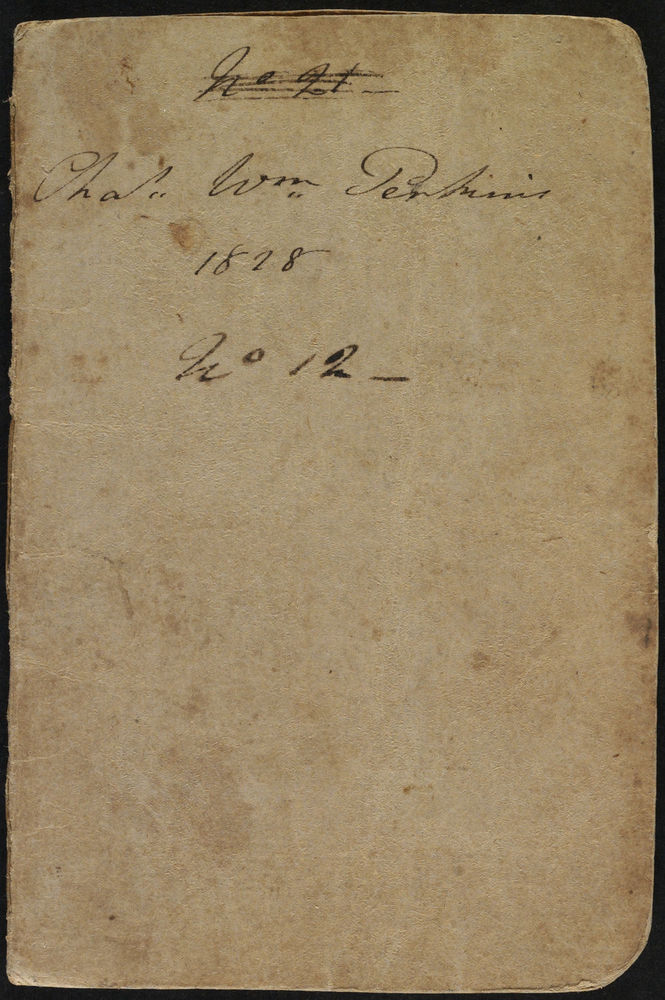 No 21 -
Chas. Wm. Perkins
1828
No 12 -